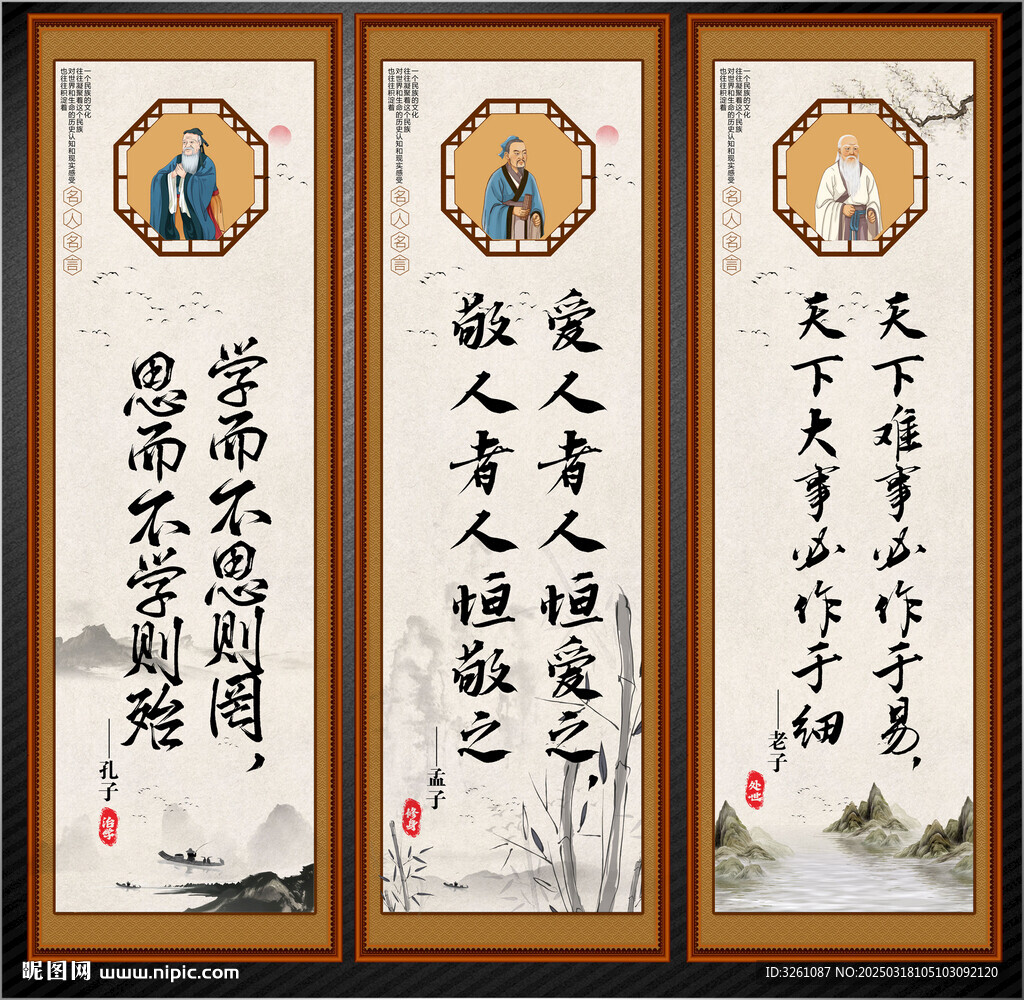 一个民族的文化
往往凝聚着这个民族
对世界和生命的历史认知和现实感受
也往往积淀着
名人名言
学而不思则罔，
思而不学则殆
——孔子
治学
一个民族的文化
往往凝聚着这个民族
对世界和生命的历史认知和现实感受
也往往积淀着
名人名言
爱人者人恒爱之，
敬人者人恒敬之
——孟子
修身
一个民族的文化
往往凝聚着这个民族
对世界和生命的历史认知和现实感受
也往往积淀着
名人名言
天下难事必作于易，
天下大事必作于细
——老子
处世
昵图网 www.nipic.com
ID:3261087 NO:20250318105103092120